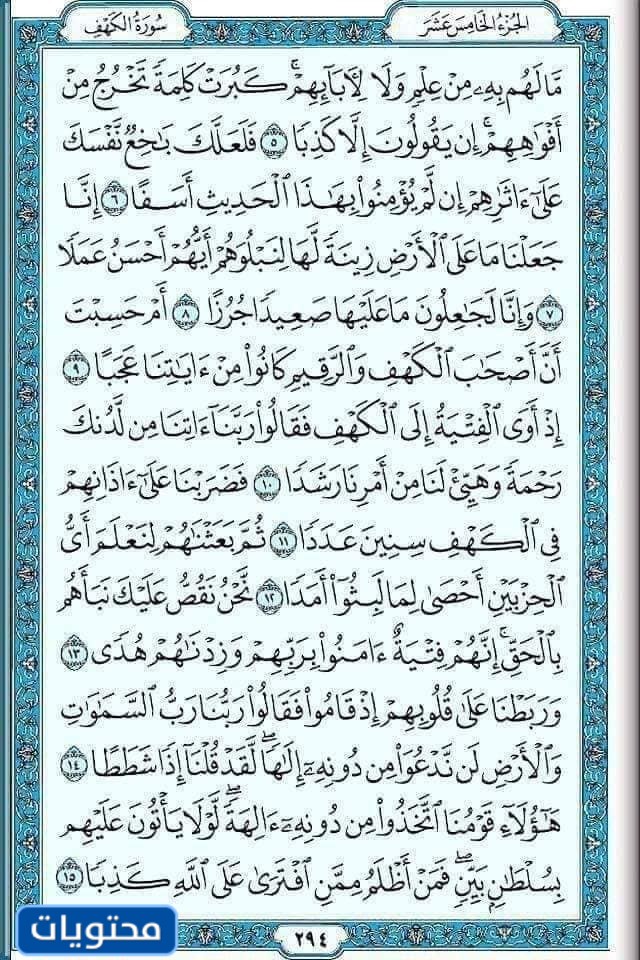 سُورَةُ الكَهْفِ
الجُزْءُ الخَامِسَ عَشَرَ
مَّا لَهُم بِهِۦ مِنْ عِلْمٍ وَلَا لِأٓبَآئِهِمْۚ كَبُرَتْ كَلِمَةً تَخْرُجُ مِنْ
أَفْوَٰهِهِمْۚ إِن يَقُولُونَ إِلَّا كَذِبًا ٥ فَلَعَلَّكَ بَٰخِعٌ نَّفْسَكَ
عَلَىٰٓ ءَاثَٰرِهِمْ إِن لَّمْ يُؤْمِنُوا۟ بِهَٰذَا ٱلْحَدِيثِ أَسَفًا ٦ إِنَّا
جَعَلْنَا مَا عَلَى ٱلْأَرْضِ زِينَةً لَّهَا لِنَبْلُوَهُمْ أَيُّهُمْ أَحْسَنُ عَمَلًا
٧ وَإِنَّا لَجَٰعِلُونَ مَا عَلَيْهَا صَعِيدًا جُرُزًا ٨ أَمْ حَسِبْتَ
أَنَّ أَصْحَٰبَ ٱلْكَهْفِ وَٱلرَّقِيمِ كَانُوا۟ مِنْ ءَايَٰتِنَا عَجَبًا ٩
إِذْ أَوَى ٱلْفِتْيَةُ إِلَى ٱلْكَهْفِ فَقَالُوا۟ رَبَّنَآ ءَاتِنَا مِن لَّدُنكَ
رَحْمَةً وَهَيِّئْ لَنَا مِنْ أَمْرِنَا رَشَدًا ١٠ فَضَرَبْنَا عَلَىٰٓ ءَاذَانِهِمْ
فِى ٱلْكَهْفِ سِنِينَ عَدَدًا ١١ ثُمَّ بَعَثْنَٰهُمْ لِنَعْلَمَ أَىُّ
ٱلْحِزْبَيْنِ أَحْصَىٰ لِمَا لَبِثُوٓا۟ أَمَدًا ١٢ نَّحْنُ نَقُصُّ عَلَيْكَ نَبَأَهُم
بِٱلْحَقِّۚ إِنَّهُمْ فِتْيَةٌ ءَامَنُوا۟ بِرَبِّهِمْ وَزِدْنَٰهُمْ هُدًى ١٣
وَرَبَطْنَا عَلَىٰ قُلُوبِهِمْ إِذْ قَامُوا۟ فَقَالُوا۟ رَبُّنَا رَبُّ ٱلسَّمَٰوَٰتِ
وَٱلْأَرْضِ لَن نَّدْعُوَا۟ مِن دُونِهِۦٓ إِلَٰهًاۖ لَّقَدْ قُلْنَآ إِذًا شَطَطًا ١٤
هَٰٓؤُلَآءِ قَوْمُنَا ٱتَّخَذُوا۟ مِن دُونِهِۦٓ ءَالِهَةًۖ لَّوْلَا يَأْتُونَ عَلَيْهِم
بِسُلْطَٰنٍۭ بَيِّنٍۖ فَمَنْ أَظْلَمُ مِمَّنِ ٱفْتَرَىٰ عَلَى ٱللَّهِ كَذِبًا ١٥
محتويات
٢٩٤